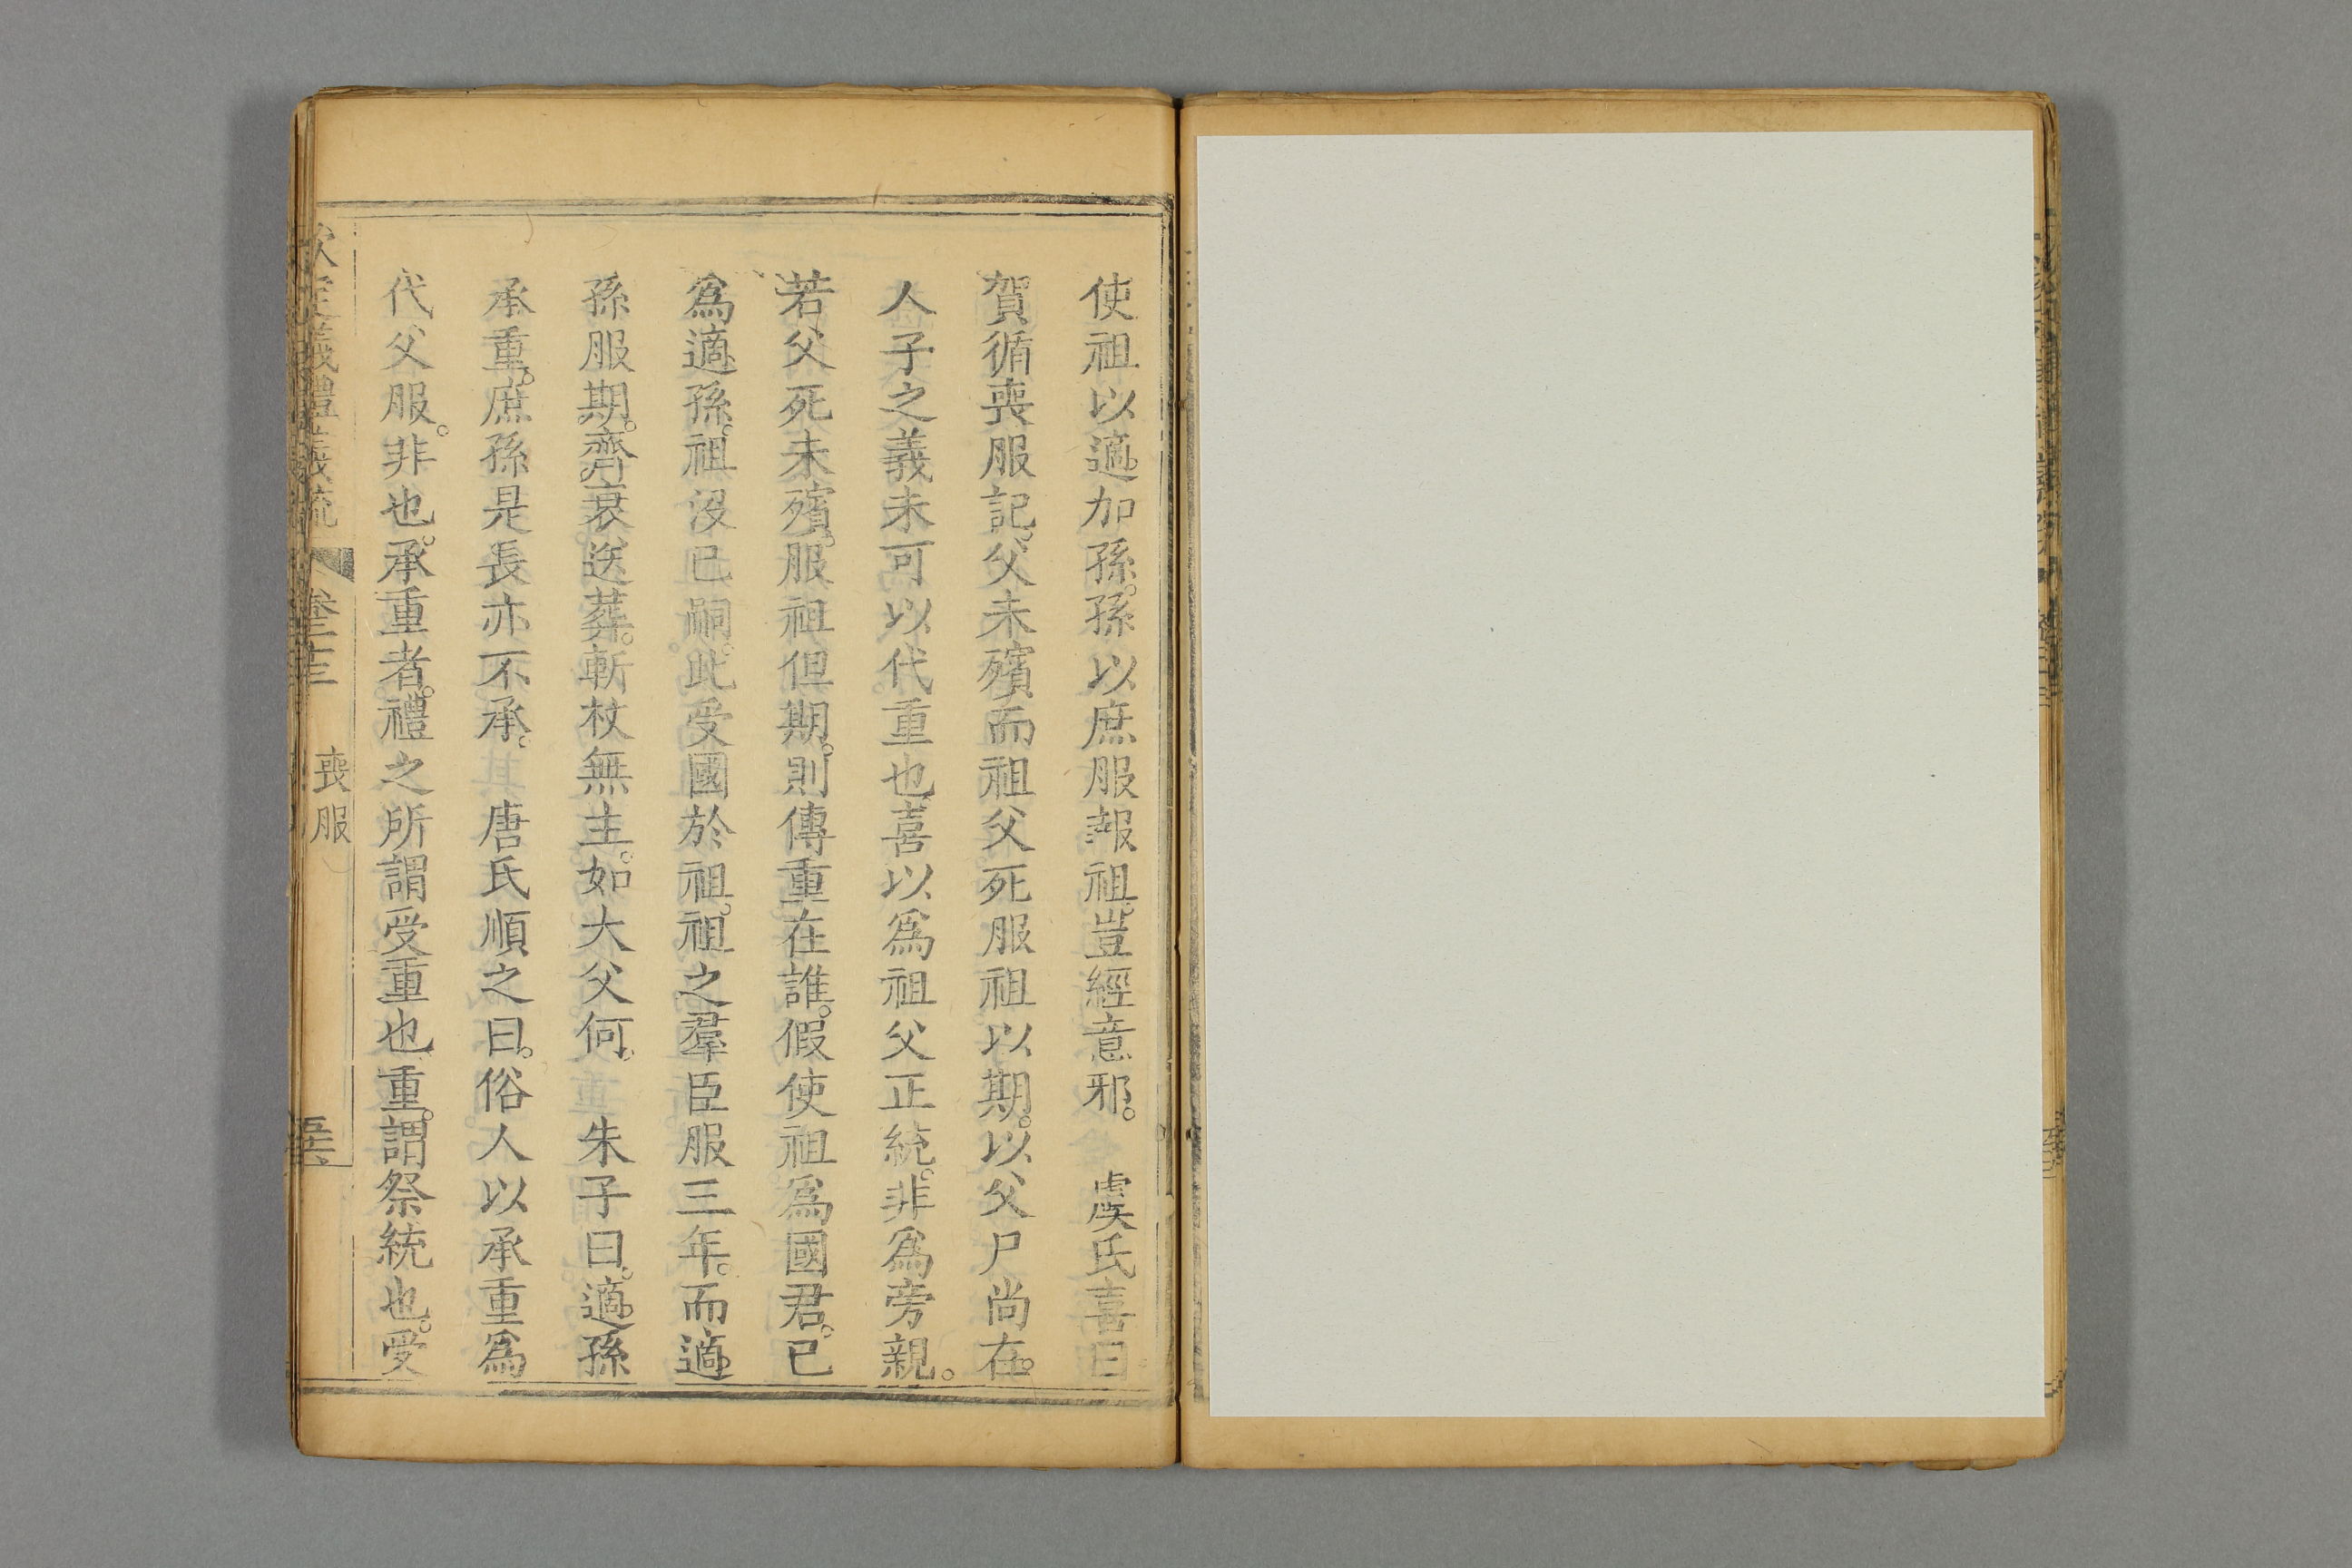 使祖以適加孫。孫以庶服報祖。豈經意邪。　虞氏喜曰
賀循喪服記。父未殯而祖父死服祖以期。以父尸尚在。
人子之義未可以代重也喜以爲祖父正統。非爲旁親。
若父死未殯。服祖但期。則傳重在誰。假使祖爲國君。已
爲適孫。祖沒已嗣。此受國於祖。祖之羣臣服三年。而適
孫服期。齊衰送葬。斬杖無主。如大父何。　朱子曰。適孫
承重。庶孫是長亦不承。　唐氏順之曰。俗人以承重爲
代父服。非也。承重者。禮之所謂受重也重。謂祭統也。受
欽定義禮義疏　卷二十三　喪服